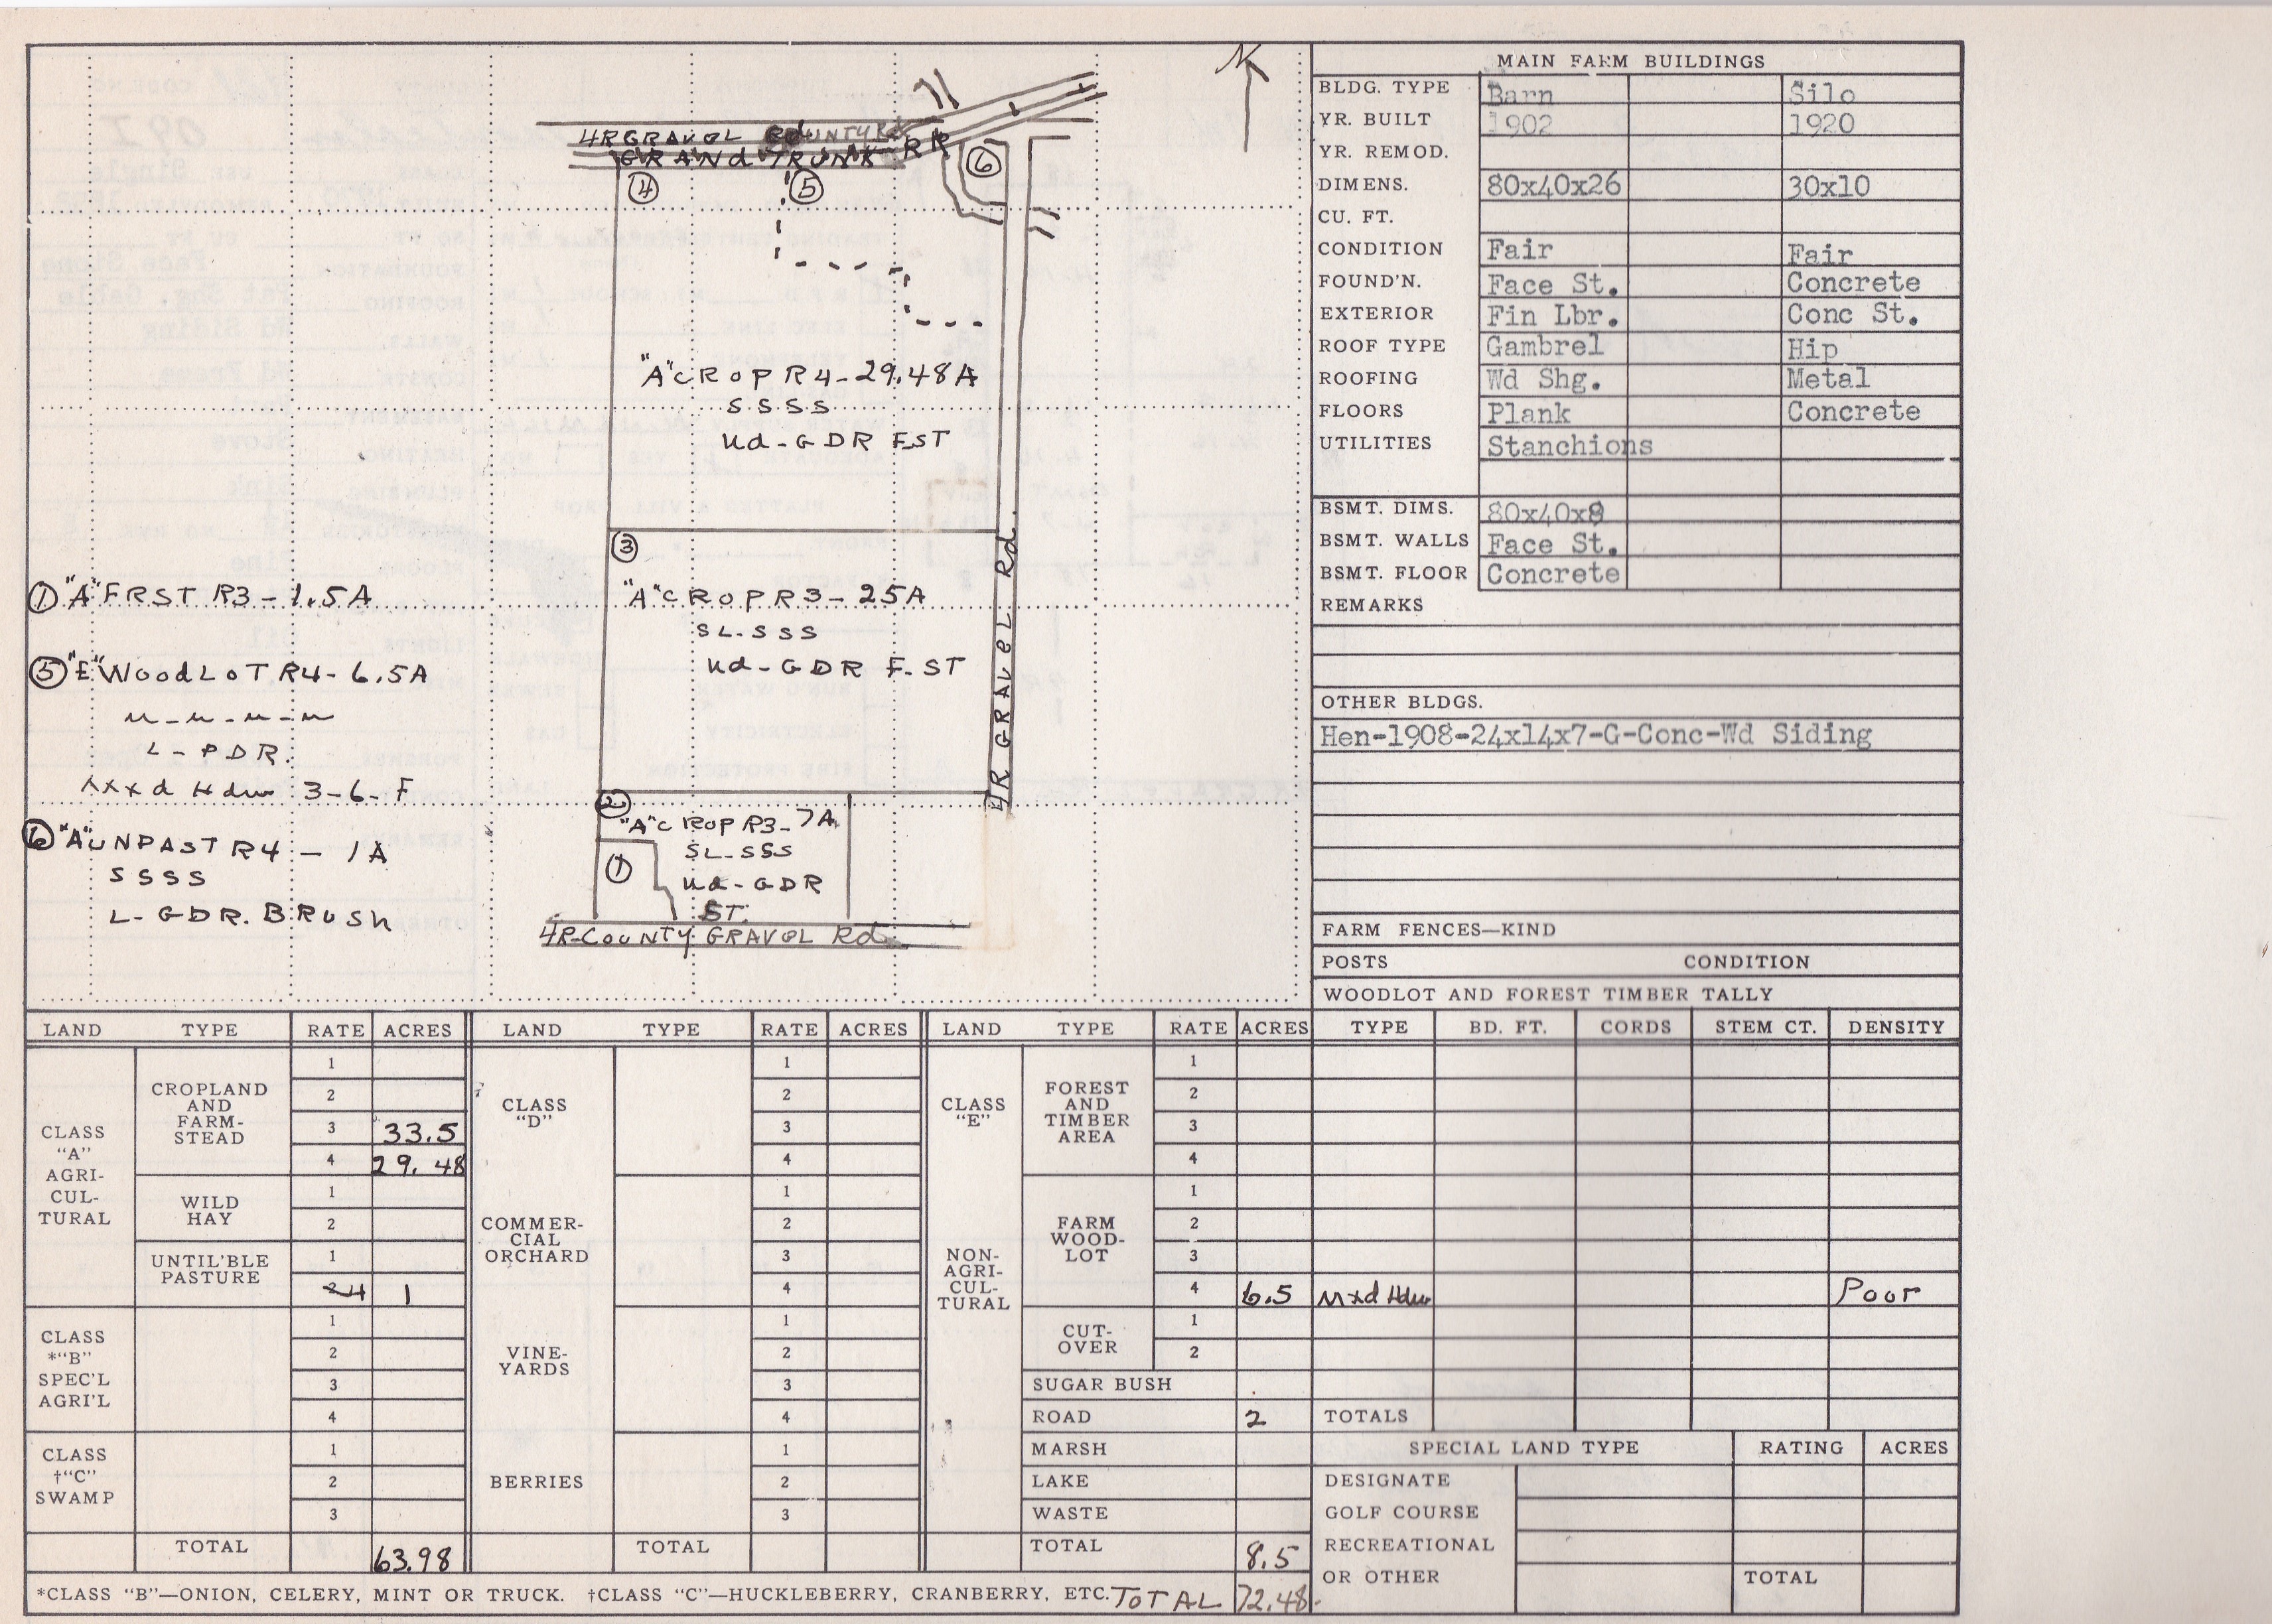 N
4R GRAVOL COUNTY Rd
GRANd TRUNK RR
④ ⑤ ⑥
"A" CROP R4-29.48A
SSSS
Ud-GDR F.ST
③
"A" CROP R3-25A
SL-SSS
Ud-GDR F.ST
4R GRAVEL Rd.
②
"A" CROP R3-7A
SL-SSS
Ud-GDR
ST.
①
4R-COUNTY GRAVOL Rd
① "A" FRST R3-1.5A
⑤ "E" WoodLOT R4-6.5A
M-M-M-M
L-PDR.
xxxd Hdw 3-6-F
⑥ "A" UNPAST R4 - 1A
SSSS
L-GDR. BRUSh
MAIN FARM BUILDINGS
BLDG. TYPE Barn Silo
YR. BUILT 1902 1920
YR. REMOD.
DIMENS. 80x40x26 30x10
CU. FT.
CONDITION Fair Fair
FOUND'N. Face St. Concrete
EXTERIOR Fin Lbr. Conc St.
ROOF TYPE Gambrel Hip
ROOFING Wd Shg. Metal
FLOORS Plank Concrete
UTILITIES Stanchions
BSMT. DIMS. 80x40x8
BSMT. WALLS Face St.
BSMT. FLOOR Concrete
REMARKS
OTHER BLDGS.
Hen-1908-24x14x7-G-Conc-Wd Siding
FARM FENCES—KIND
POSTS CONDITION
WOODLOT AND FOREST TIMBER TALLY
TYPE BD. FT. CORDS STEM CT. DENSITY
Mxd Hdw Poor
TOTALS
SPECIAL LAND TYPE RATING ACRES
DESIGNATE
GOLF COURSE
RECREATIONAL
OR OTHER TOTAL
LAND TYPE RATE ACRES
CLASS
"A"
AGRI-
CUL-
TURAL
CROPLAND
AND
FARM-
STEAD
1
2
3 33.5
4 29.48
WILD
HAY
1
2
UNTIL'BLE
PASTURE
1
2 4 1
CLASS
*"B"
SPEC'L
AGRI'L
1
2
3
4
CLASS
†"C"
SWAMP
1
2
3
TOTAL 63.98
LAND TYPE RATE ACRES
CLASS
"D"
1
2
3
4
COMMER-
CIAL
ORCHARD
1
2
3
4
VINE-
YARDS
1
2
3
4
BERRIES
1
2
3
TOTAL
LAND TYPE RATE ACRES
CLASS
"E"
NON-
AGRI-
CUL-
TURAL
FOREST
AND
TIMBER
AREA
1
2
3
4
FARM
WOOD-
LOT
1
2
3
4 6.5
CUT-
OVER
1
2
SUGAR BUSH
ROAD 2
MARSH
LAKE
WASTE
TOTAL 8.5
*CLASS "B"—ONION, CELERY, MINT OR TRUCK. †CLASS "C"—HUCKLEBERRY, CRANBERRY, ETC. TOTAL 72.48